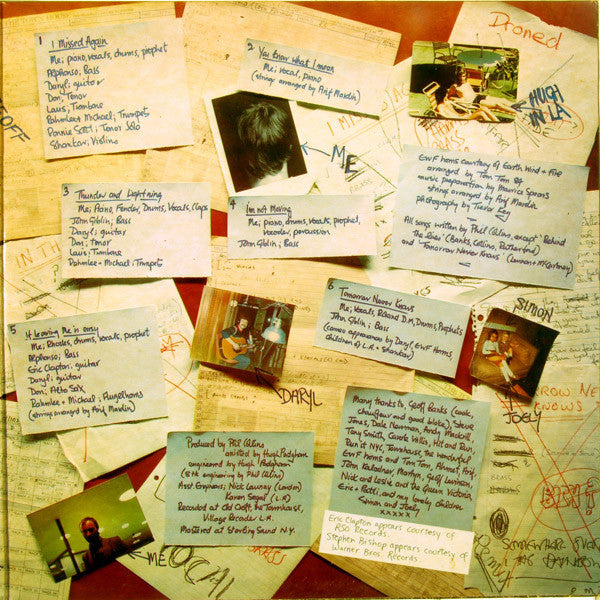 Droned
1 I Missed Again
Me; piano, vocals, drums, prophet
Alphonso; Bass
Daryl; guitar
Don; Tenor
Louis; Trombone
Rahmlee + Michael; Trumpets
Ronnie Scott; Tenor Solo
Shankar; Violins
2 You Know What I mean
Me; vocal, piano
(strings arranged by Arif Mardin)
HUGH
IN LA
ME
EWF horns courtesy of Earth Wind + Fire
arranged by Tom Tom 84
music preparation by Maurice Spears
strings arranged by Arif Mardin
photography by Trevor Key
All songs written by Phil Collins, except 'Behind
the Lines' (Banks, Collins, Rutherford)
and 'Tomorrow Never Knows' (Lennon + McCartney)
3 Thunder and Lightning
Me; Piano, Fender, Drums, Vocals, Claps
John Giblin; Bass
Daryl; guitar
Don; tenor
Louis; Trombone
Rahmlee + Michael; Trumpets
4 I'm not Moving
Me; piano, drums, vocals, prophet,
vocoder, percussion
John Giblin; Bass
IN TH
5 If leaving Me is easy
Me; Rhodes, drums, vocals, prophet
Alphonso; Bass
Eric Clapton; guitar
Daryl; guitar
Don; Alto Sax
Rahmlee + Michael; Flugelhorns
(strings arranged by Arif Mardin)
DARYL
6 Tomorrow Never Knows
Me; Vocals, Roland D.M, Drums, Prophets
John Giblin; Bass
(cameo appearances by Daryl, EWF Horns,
children of L.A + Shankar)
SIMON
JOELY
ROW NE
KNOWS
Produced by Phil Collins
assisted by Hugh Padgham
engineered by Hugh Padgham
(8tk engineering by Phil Collins)
Asst. Engineers; Nick Launay (London)
Karen Segal (L.A)
Recorded at Old Croft, the Townhouse,
Village Recorder L.A.
Mastered at Sterling Sound N.Y.
Many thanks to Geoff Banks (cook,
chauffeur and good bloke), Steve
Jones, Dale Newman, Andy Mackrill,
Tony Smith, Carole Willis, Hit and Run,
Run it NYC, Townhouse, the wonderful
EWF horns and Tom Tom, Ahmet, Arif,
John Kalodner, Martyn, Geoff, Lewinson,
Nick and Leslie and the Queen Victoria,
Eric + Patti, and my lovely children
Simon and Joely
xxxxx!
Eric Clapton appears courtesy of
RSO Records.
Stephen Bishop appears courtesy of
Warner Bros. Records
ME